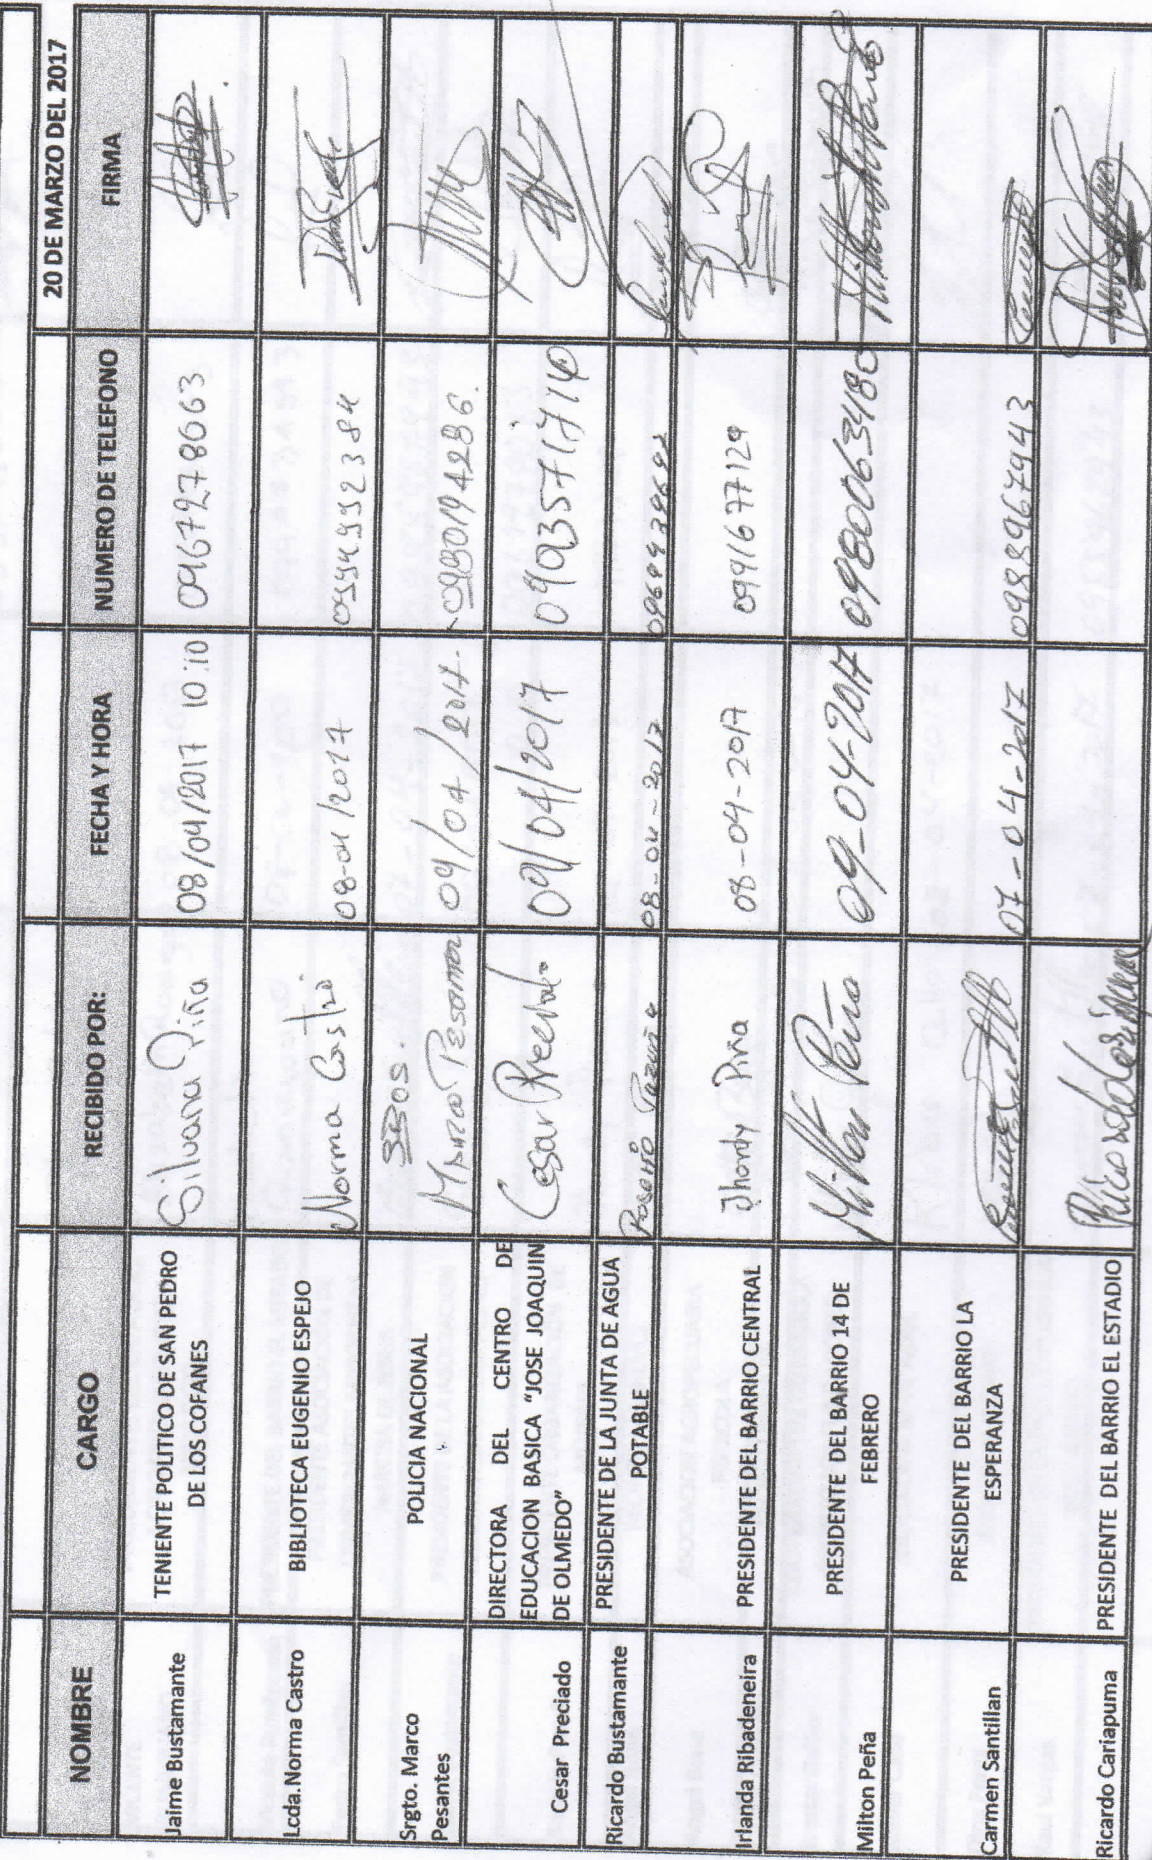 20 DE MARZO DEL 2017
NOMBRE CARGO RECIBIDO POR: FECHA Y HORA NUMERO DE TELEFONO FIRMA
Jaime Bustamante TENIENTE POLITICO DE SAN PEDRO DE LOS COFANES Silvana Piña 08/04/2017 10:10 0967278663
Lcda. Norma Castro BIBLIOTECA EUGENIO ESPEJO Norma Castro 08-04/2017 0994992384
Srgto. Marco Pesantes POLICIA NACIONAL SBOS. Marco Pesantez 09/04/2017. 0990194286.
Cesar Preciado DIRECTORA DEL CENTRO DE EDUCACION BASICA "JOSE JOAQUIN DE OLMEDO" Cesar Preciado 09/04/2017
Ricardo Bustamante PRESIDENTE DE LA JUNTA DE AGUA POTABLE Rosario 08-04-2017
Irlanda Ribadeneira PRESIDENTE DEL BARRIO CENTRAL Jhondy Piña 08-04-2017 0991677129
Milton Peña PRESIDENTE DEL BARRIO 14 DE FEBRERO Milton Peña 09-04-2017 0980063480
Carmen Santillan PRESIDENTE DEL BARRIO LA ESPERANZA 07-04-2017 0988967943
Ricardo Cariapuma PRESIDENTE DEL BARRIO EL ESTADIO